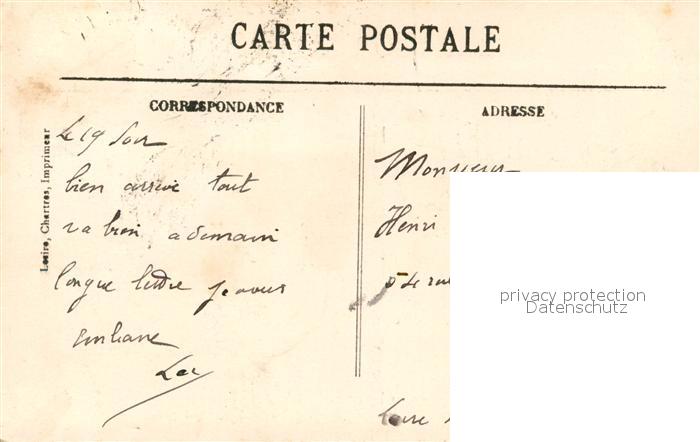 CARTE POSTALE
CORRESPONDANCE
ADRESSE
Le 19 Soir
bien arrivé tout
va bien a demain
longue lettre je vous
embrasse
Monsieur
Henri
rue
Loire
privacy protection
Datenschutz
Chartres, Imprimeur